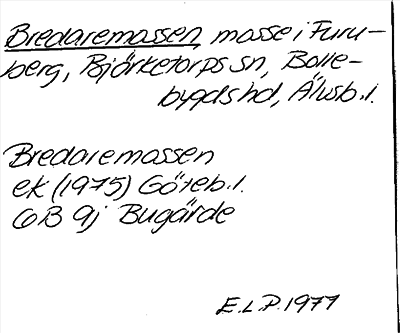 Bredaremossen, mosse i Furu-
berg, Björketorps sn, Bolle-
bygds hd, Älvsb. l.
Bredaremossen
ek (1975) Göteb. l.
6B 9j Bugärde
E.L.P. 1977